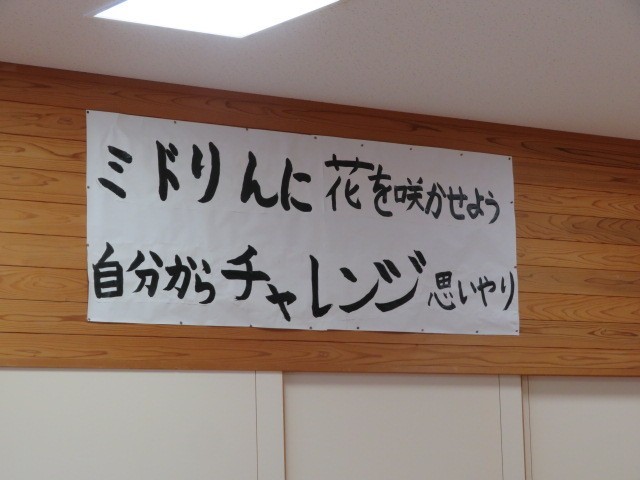 ミドりんに花を咲かせよう
自分からチャレンジ思いやり